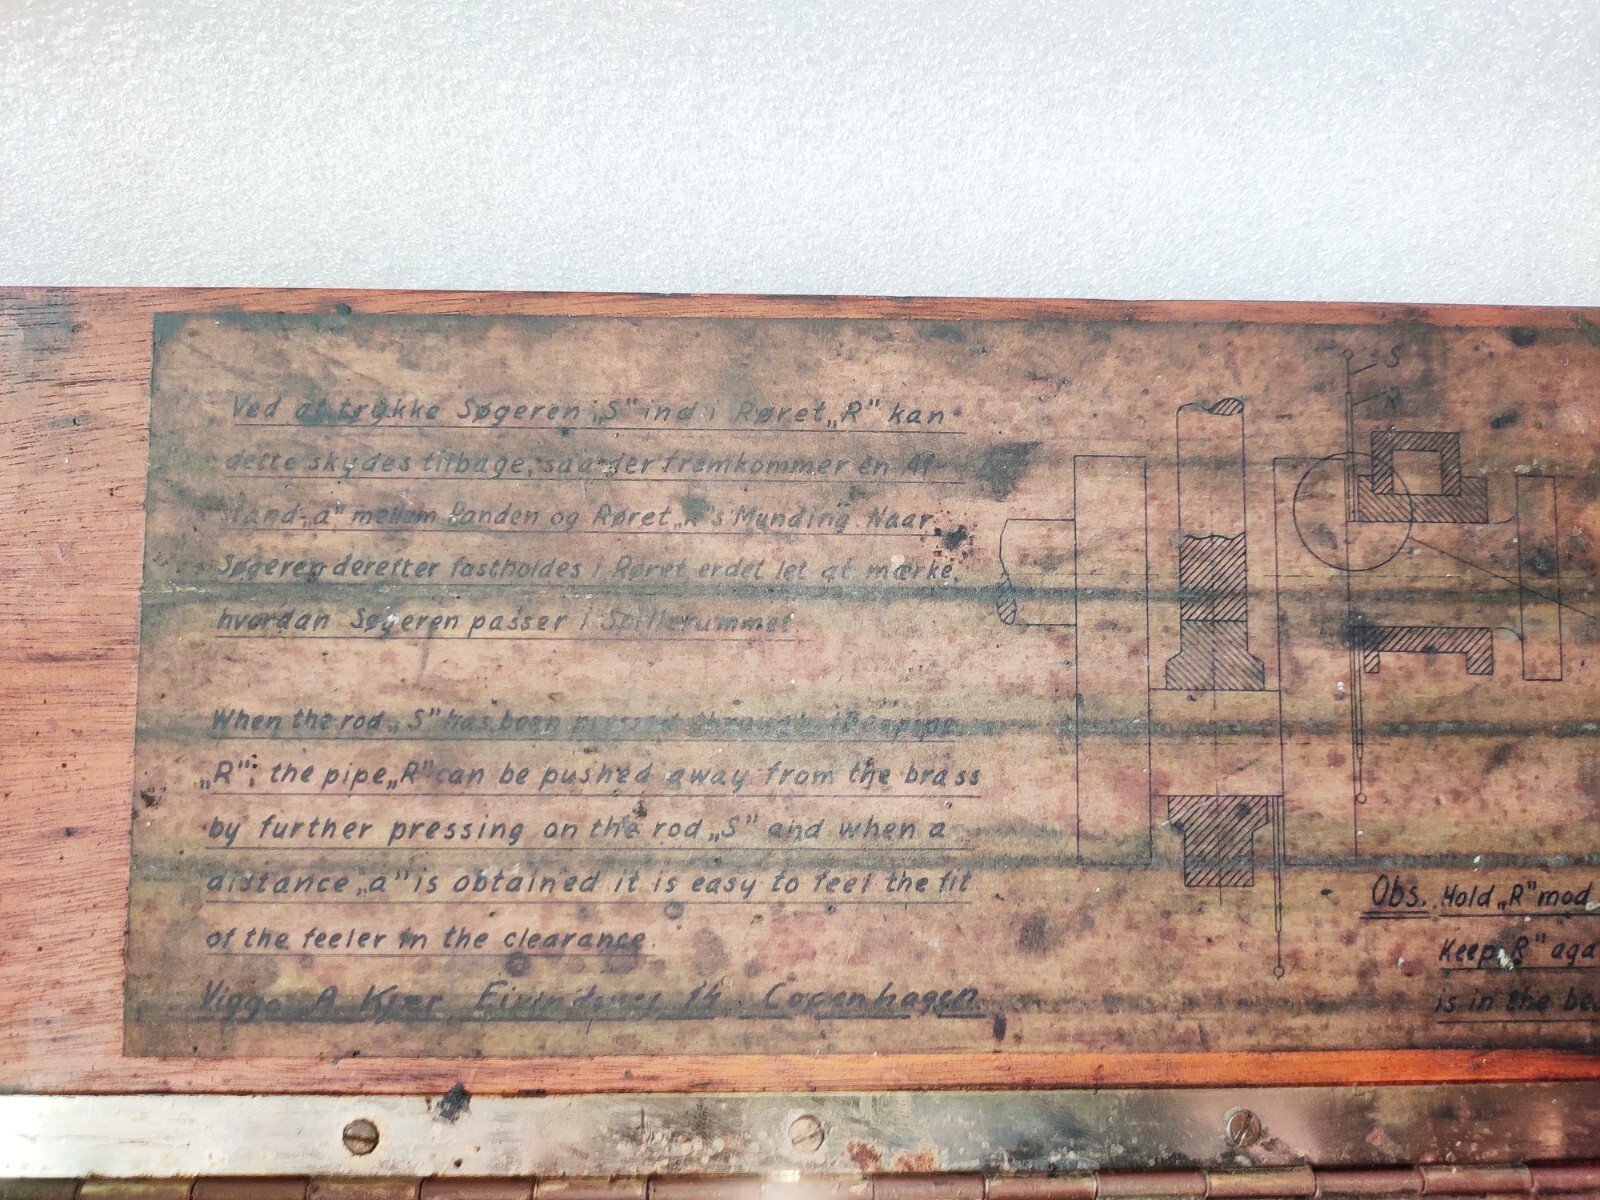 Ved at trykke Søgeren „S" ind i Røret „R" kan
dette skydes tilbage, saa der fremkommer en Af-
stand „a" mellem Panden og Røret „R"s Munding. Naar
Søgeren derefter fastholdes i Røret er det let at mærke,
hvordan Søgeren passer i Spillerummet
When the rod „S" has been pressed through the pipe
„R", the pipe „R" can be pushed away from the brass
by further pressing on the rod „S" and when a
distance „a" is obtained it is easy to feel the fit
of the feeler in the clearance.
Viggo A Kjær 14 Copenhagen.
S
R
Obs. Hold „R" mod
Keep „R" aga
is in the be